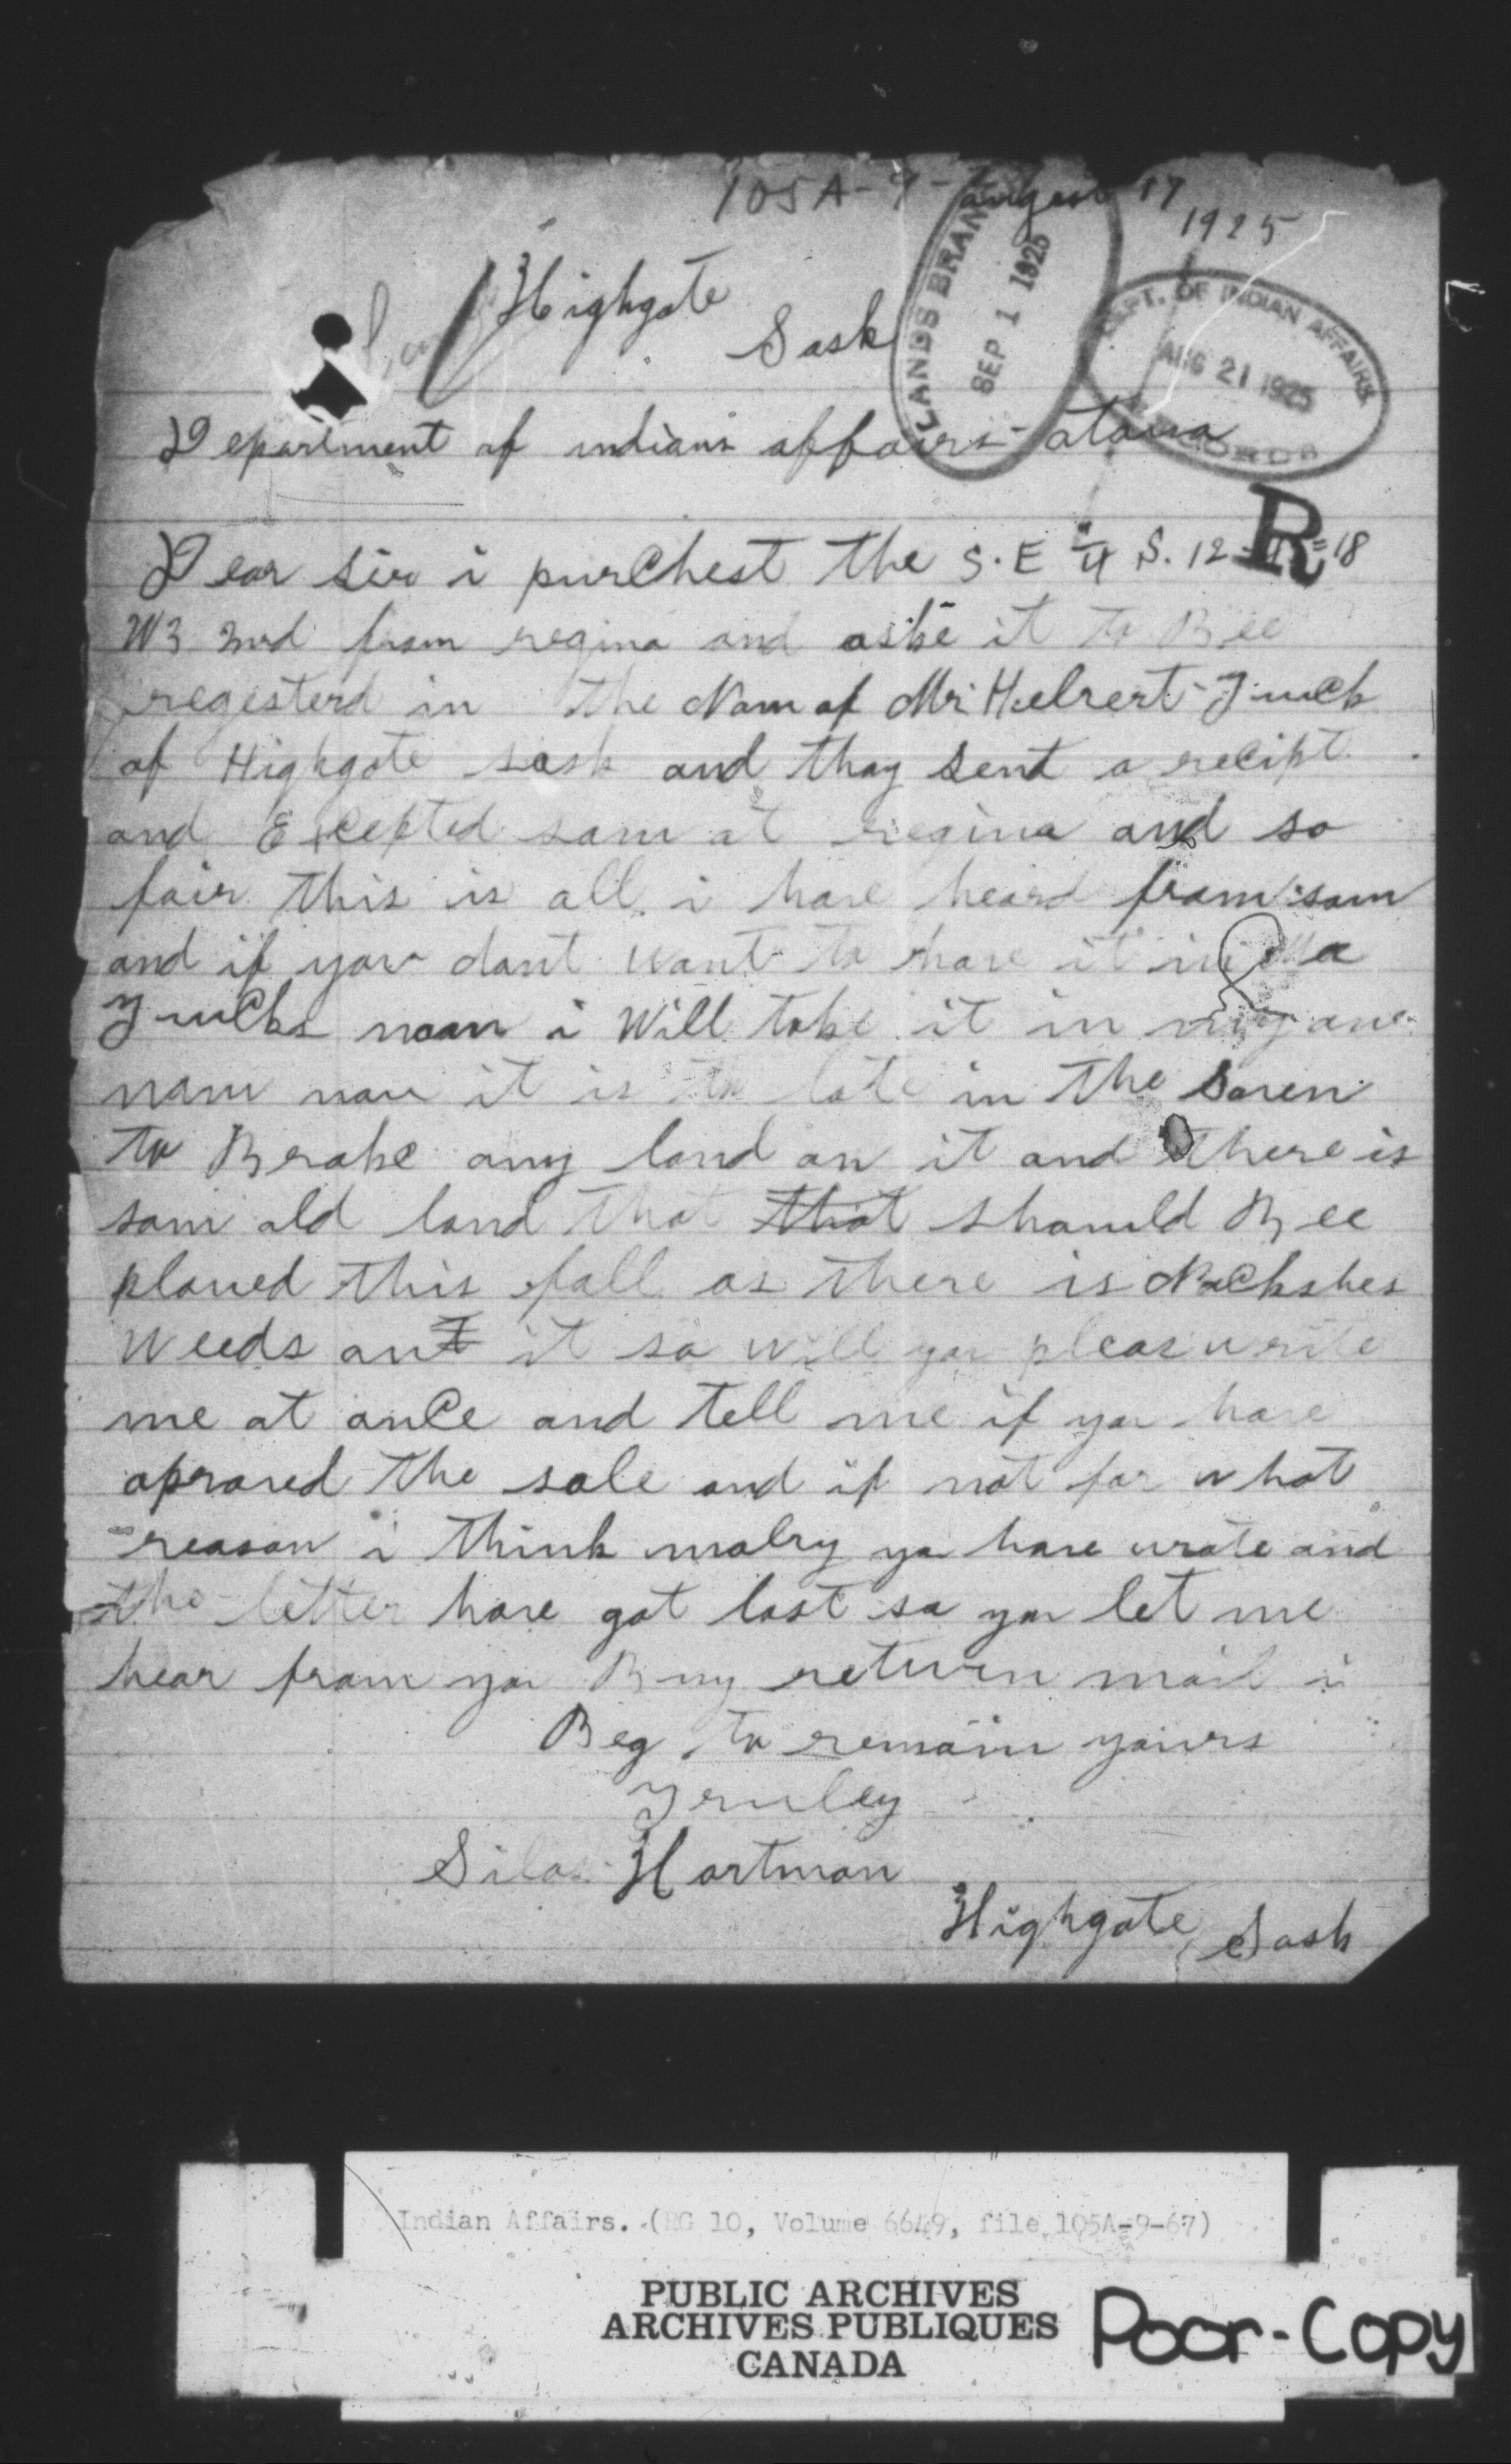 105A-9-
Augest 17
1925
LANDS BRAN
SEP 1 1925
DEPT. OF INDIAN AFFAIRS
AUG 21 1925
RECORDS
Highgate
Sask
Department of indians affairs - atawa
R
Dear Sir i purchest the S.E ¼ S. 12 = = 18
W3 3rd from regina and aske it to Bee
regesterd in the Nam of Mr. Huelrert Tuck
of Highgate sask and thay sent a recipt
and Excepted sam at regina and so
fair this is all i have heard from sam
and if yow dont want to have it in Mr
Tucks nam i Will take it in my own
nam now it is to late in the Sasen
to Brake any land on it and there is
som old land that that should Bee
plowed this fall as there is Nockshes
weeds on it so will you pleas write
me at once and tell me if you have
aproved the sale and if not for what
reason i think malby you have wrote and
the letter have got lost so you let me
hear from you Buy return mail i
Beg to remain yours
Truley
Silas Hartman
Highgate Sask
Indian Affairs. (RG 10, Volume 6649, file 105A-9-67)
PUBLIC ARCHIVES
ARCHIVES PUBLIQUES
CANADA
Poor-Copy